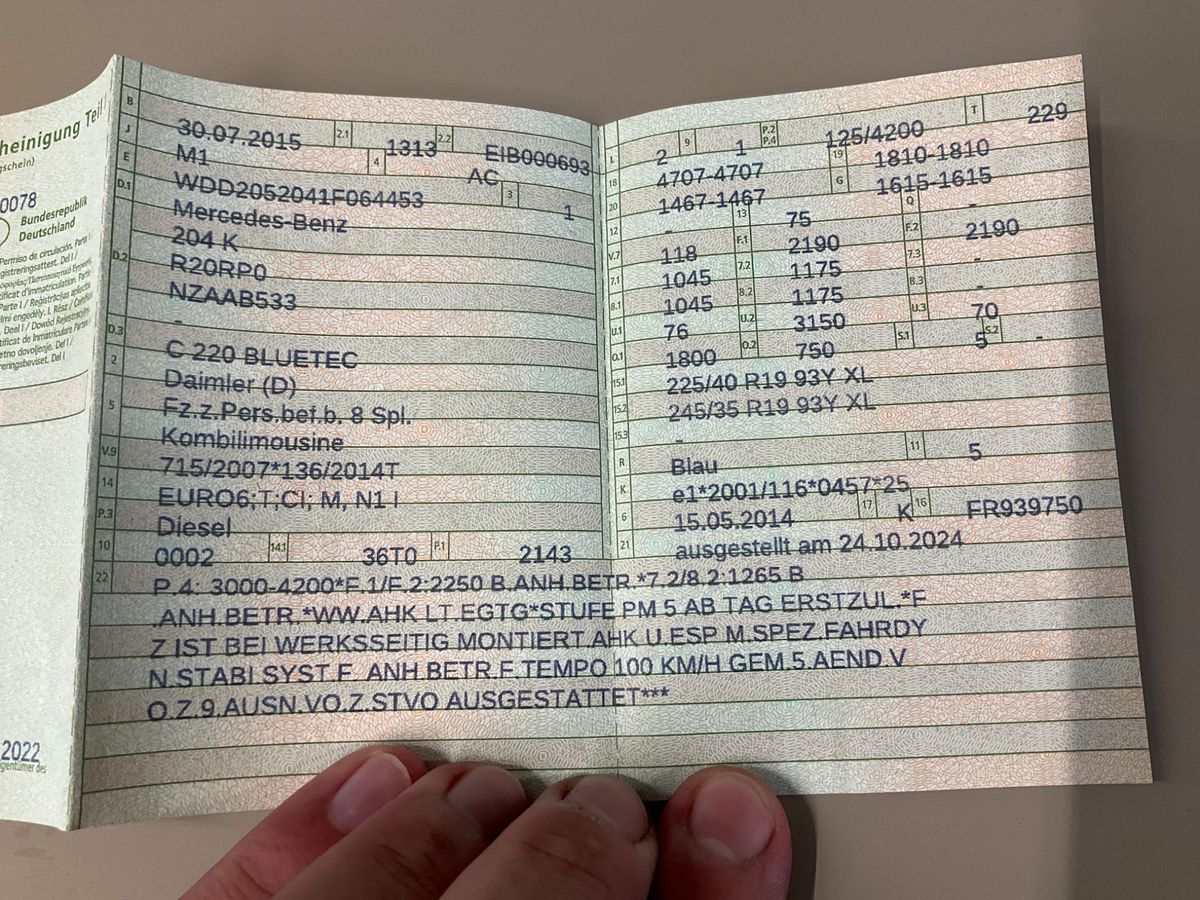 heinigung Teil
gschein)
0078
Bundesrepublik
Deutschland
Permiso de circulación. Parte I /
2022
gentümer des
B 30.07.2015 2.1 1313 2.2 EIB000693
J M1 4 AC
E WDD2052041F064453 3 1
D.1 Mercedes-Benz
D.2 204 K
R20RP0
NZAAB533
-
D.3 C 220 BLUETEC
2 Daimler (D)
5 Fz.z.Pers.bef.b. 8 Spl.
Kombilimousine
V.9 715/2007*136/2014T
14 EURO6;T;CI; M, N1 I
P.3 Diesel
10 0002 14.1 36T0 P.1 2143
L 2 9 1 P.2 P.4 125/4200 T 229
18 4707-4707 19 1810-1810
20 1467-1467 G 1615-1615
12 - 13 75 Q -
V.7 118 F.1 2190 F.2 2190
7.1 1045 7.2 1175 7.3 -
8.1 1045 8.2 1175 8.3 -
U.1 76 U.2 3150 U.3 70
O.1 1800 O.2 750 S.1 5 S.2 -
15.1 225/40 R19 93Y XL
15.2 245/35 R19 93Y XL
15.3 -
R Blau 11 5
K e1*2001/116*0457*25
6 15.05.2014 17 K 16 FR939750
21 ausgestellt am 24.10.2024
22 P.4: 3000-4200*F.1/F.2:2250 B.ANH.BETR.*7.2/8.2:1265 B
.ANH.BETR.*WW.AHK LT.EGTG*STUFE PM 5 AB TAG ERSTZUL.*F
Z IST BEI WERKSSEITIG MONTIERT.AHK U.ESP M.SPEZ.FAHRDY
N.STABI.SYST F. ANH.BETR.F.TEMPO 100 KM/H GEM.5.AEND.V
O.Z.9.AUSN.VO.Z.STVO AUSGESTATTET***